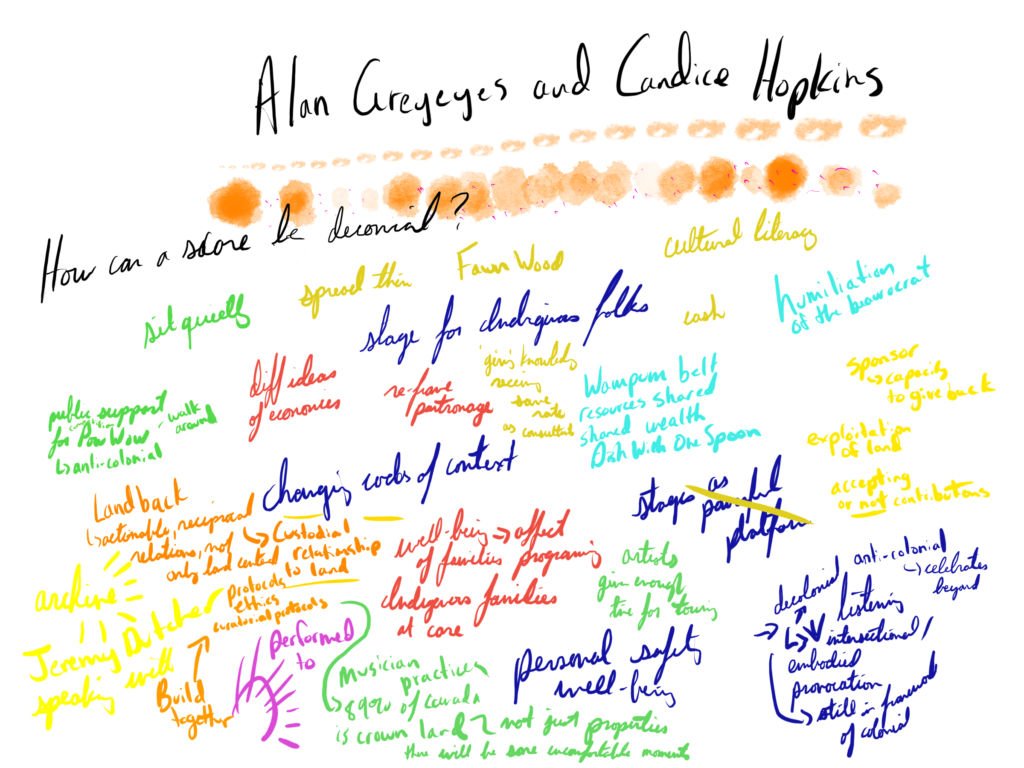 Alan Greyeyes and Candice Hopkins
How can a score be deconial?
sit quietly
spread thin
Fawn Wood
cultural literacy
stage for Indiginous folks
cash
humiliation
of the beaurocrat
diff ideas
of economies
re-frame
patronage
giving knowledge
receiving
same
rate
as consultant
Wampum belt
resources shared
shared wealth
Dish With One Spoon
sponsor
↳ capacity
to give back
public support
for Pow Wow - walk
around
↳ anti-colonial
exploitation
of land
accepting
or not contributions
changing codes of context
stages as
powerful
platform
Landback
↳ actionable, reciprocal
relations, not
only land centred
↳ Custodial
relationship
to land
protocols
ethics
curatorial protocols
well-being → affect
of families programing
Indigenous families
at core
artists
give enough
time for touring
decolonial
anti-colonial
↳ celebrates
beyond
→ listening
intersectional/
embodied
provocation
→ still in framework
of colonial
archive
Jeremy Dutcher
speaking with
Build
together
performed
to
musician
practices
89% of Canada
is crown land
not just properties
there will be some uncomfortable moments
personal safety
well-being